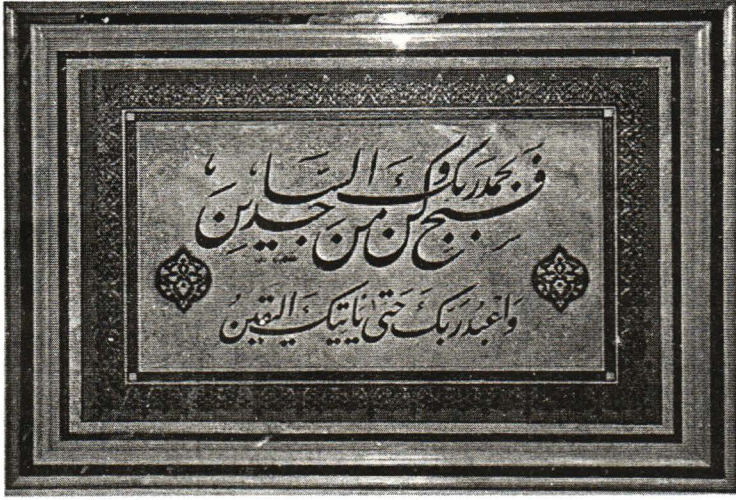 فَسَبِّحْ بِحَمْدِ رَبِّكَ وَكُن مِّنَ السَّاجِدِينَ
وَاعْبُدْ رَبَّكَ حَتَّىٰ يَأْتِيَكَ الْيَقِينُ